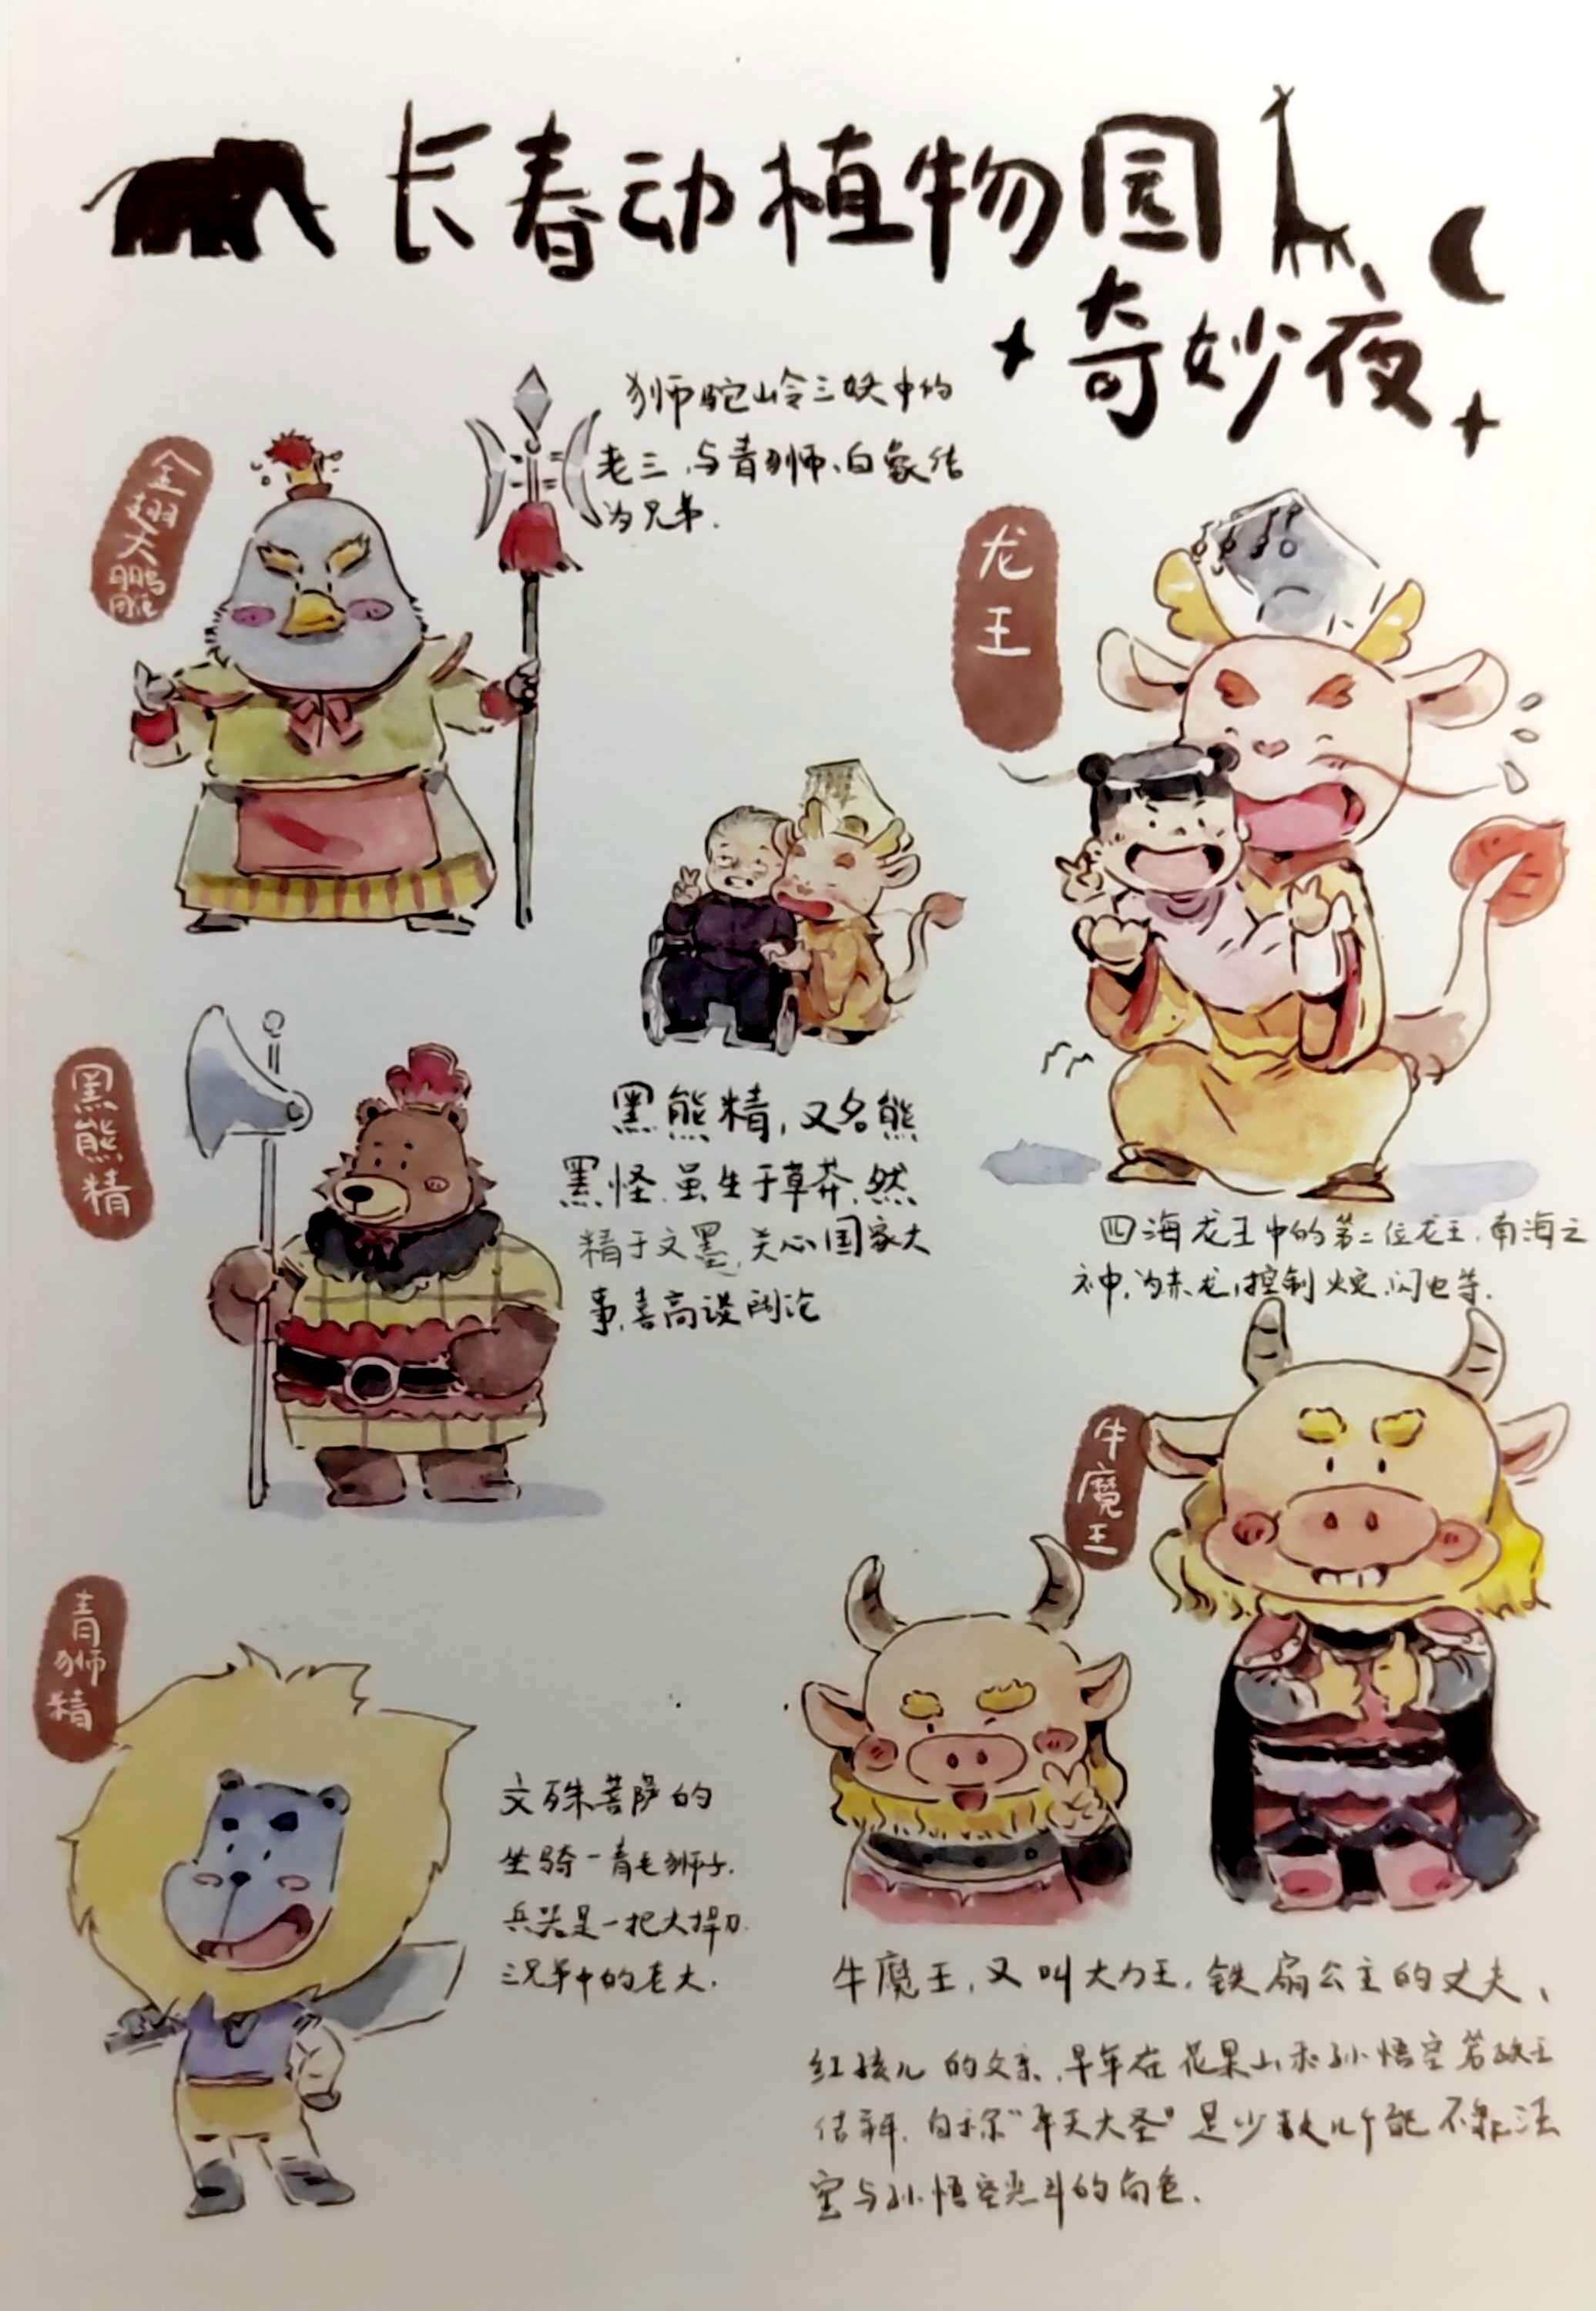 长春动植物园
奇妙夜
金翅大鹏雕
狮驼岭三妖中的
老三,与青狮、白象结
为兄弟.
龙王
四海龙王中的第二位龙王,南海之
神,为赤龙,控制火灾、闪电等.
黑熊精
黑熊精,又名熊
黑怪.虽生于草莽,然
精于文墨,关心国家大
事,喜高谈阔论
牛魔王
青狮精
文殊菩萨的
坐骑一青毛狮子.
兵器是一把大捍刀.
三兄弟中的老大.
牛魔王,又叫大力王,铁扇公主的丈夫、
红孩儿的父亲,早年在花果山和孙悟空等妖王
结拜,自称“平天大圣”是少数几个能不靠法
宝与孙悟空恶斗的角色.